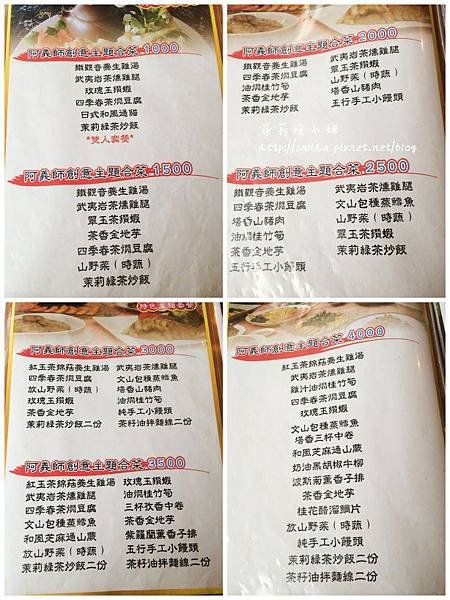 阿義師創意主題合菜 1000
鐵觀音養生雞湯
武夷岩茶燻雞腿
玫瑰玉鑽蝦
四季春茶燜豆腐
日式和風過貓
茉莉綠茶炒飯
*雙人套餐*
阿義師創意主題合菜 1500
鐵觀音養生雞湯
武夷岩茶燻雞腿
翠玉茶鑽蝦
茶香金地芋
四季春茶燜豆腐
山野菜(時蔬)
茉莉綠茶炒飯
阿義師創意主題合菜 2000
鐵觀音養生雞湯
四季春茶燜豆腐
油燜桂竹筍
茶香金地芋
茉莉綠茶炒飯
武夷岩茶燻雞腿
翠玉茶鑽蝦
山野菜(時蔬)
塔香山豬肉
五行手工小饅頭
http://saliha.pixnet.net/blog
阿義師創意主題合菜 2500
鐵觀音養生雞湯
四季春茶燜豆腐
塔香山豬肉
油燜桂竹筍
茶香金地芋
五行手工小饅頭
武夷岩茶燻雞腿
文山包種蒸鱈魚
翠玉茶鑽蝦
山野菜(時蔬)
茉莉綠茶炒飯
特色主題套餐
阿義師創意主題合菜 3000
紅玉茶錦菇養生雞湯
四季春茶燜豆腐
放山野菜(時蔬)
玫瑰玉鑽蝦
茶香金地芋
茉莉綠茶炒飯二份
武夷岩茶燻雞腿
文山包種蒸鱈魚
塔香山豬肉
油燜桂竹筍
純手工小饅頭
茶籽油拌麵線二份
阿義師創意主題合菜 3500
紅玉茶錦菇養生雞湯
武夷岩茶燻雞腿
四季春茶燜豆腐
文山包種蒸鱈魚
和風芝麻過山蕨
放山野菜(時蔬)
茉莉綠茶炒飯二份
玫瑰玉鑽蝦
油燜桂竹筍
三杯孜香中卷
茶香金地芋
紫羅蘭薰香子排
五行手工小饅頭
茶籽油拌麵線二份
阿義師創意主題合菜 4000
紅玉茶錦菇養生雞湯
武夷岩茶燻雞腿
雞汁油燜桂竹筍
四季春茶燜豆腐
玫瑰玉鑽蝦
文山包種蒸鱈魚
塔香三杯中卷
和風芝麻過山蕨
奶油黑胡椒牛柳
波斯菊薰香子排
茶香金地芋
桂花醋溜鯛片
放山野菜(時蔬)
純手工小饅頭
茉莉綠茶炒飯二份
茶籽油拌麵線二份